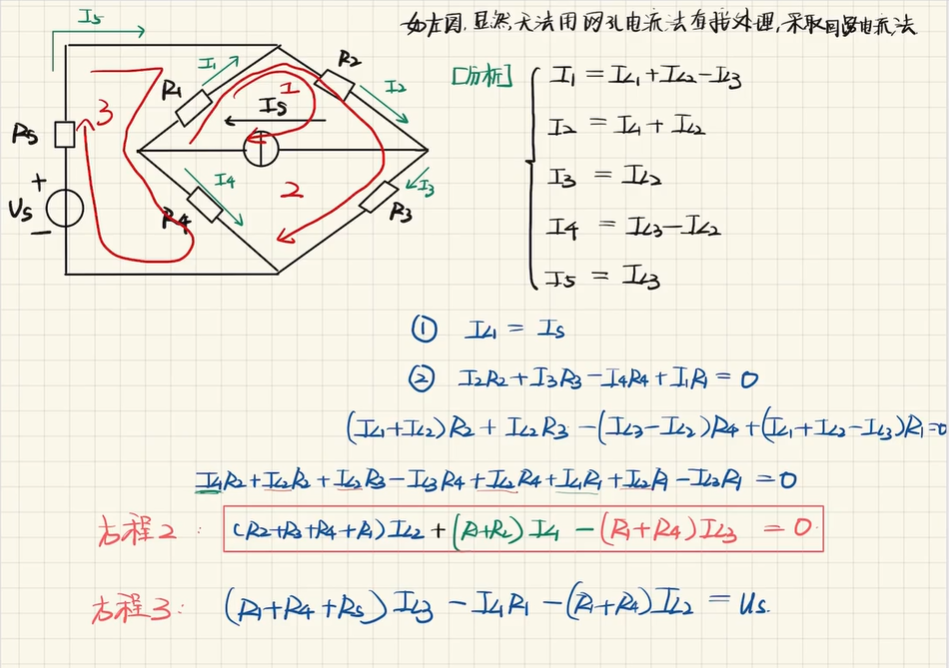 如左图,显然,无法用网孔电流法直接处理,采取回路电流法
I5
R1
I1
R2
I2
1
Is
3
R5
+
Us
−
I4
R4
2
I3
R3
[分析]
I1 = IL1+IL2−IL3
I2 = IL1+IL2
I3 = IL2
I4 = IL3−IL2
I5 = IL3
① IL1 = Is
② I2R2+I3R3−I4R4+I1R1=0
(IL1+IL2)R2+IL2R3−(IL3−IL2)R4+(IL1+IL2−IL3)R1=0
IL1R2+IL2R2+IL2R3−IL3R4+IL2R4+IL1R1+IL2R1−IL3R1=0
方程2: (R2+R3+R4+R1)IL2+(R1+R2)IL1−(R1+R4)IL3=0
方程3: (R1+R4+R5)IL3−IL1R1−(R1+R4)IL2=Us.